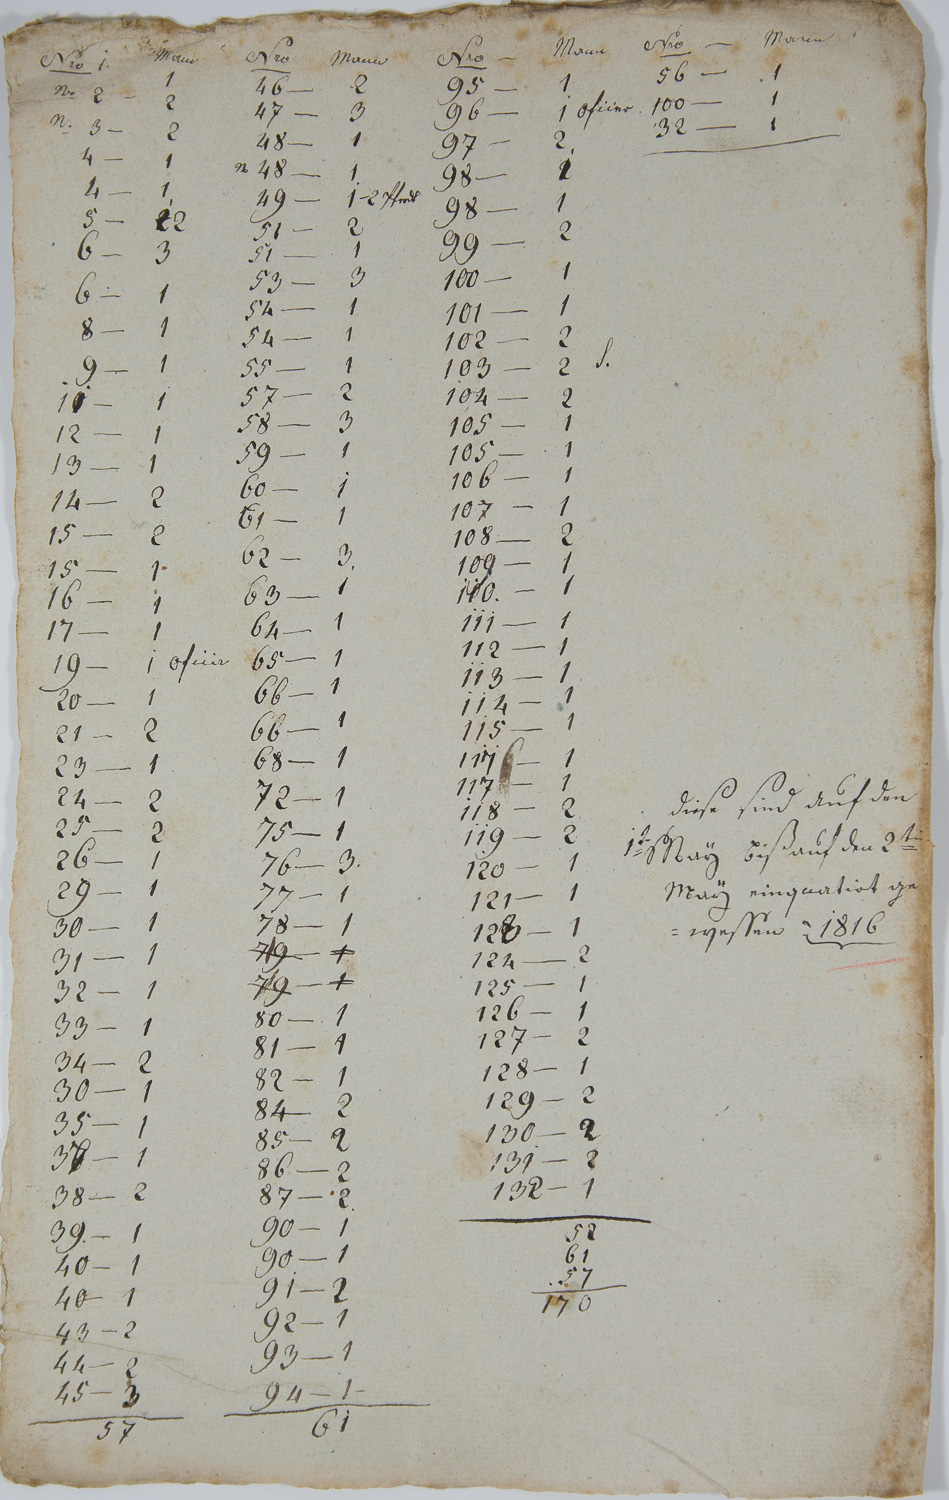 Nro 1. Mann
1
No 2 — 2
n. 3 — 2
4 — 1
4 — 1
5 — 2
6 — 3
6 — 1
8 — 1
9 — 1
11 — 1
12 — 1
13 — 1
14 — 2
15 — 2
15 — 1
16 — 1
17 — 1
19 — 1 oficier
20 — 1
21 — 2
23 — 1
24 — 2
25 — 2
26 — 1
29 — 1
30 — 1
31 — 1
32 — 1
33 — 1
34 — 2
30 — 1
35 — 1
37 — 1
38 — 2
39. — 1
40 — 1
40 — 1
43 — 2
44 — 2
45 — 3
57
Nro Mann
46 — 2
47 — 3
48 — 1
n 48 — 1
49 — 1 - 2 Pferd
51 — 2
51 — 1
53 — 3
54 — 1
54 — 1
55 — 1
57 — 2
58 — 3
59 — 1
60 — 1
61 — 1
62 — 3.
63 — 1
64 — 1
65 — 1
66 — 1
66 — 1
68 — 1
72 — 1
75 — 1
76 — 3.
77 — 1
78 — 1
79 — 1
79 — 1
80 — 1
81 — 1
82 — 1
84 — 2
85 — 2
86 — 2
87 — 2
90 — 1
90 — 1
91 — 2
92 — 1
93 — 1
94 — 1
61
Nro — Mann
95 — 1
96 — 1 oficier.
97 — 2
98 — 1
98 — 1
99 — 2
100 — 1
101 — 1
102 — 2
103 — 2 S.
104 — 2
105 — 1
105 — 1
106 — 1
107 — 1
108 — 2
109 — 1
110. — 1
111 — 1
112 — 1
113 — 1
114 — 1
115 — 1
116 — 1
117 — 1
118 — 2
119 — 2
120 — 1
121 — 1
128 — 1
124 — 2
125 — 1
126 — 1
127 — 2
128 — 1
129 — 2
130 — 2
131 — 2
132 — 1
52
61
57
170
Nro — Mann
56 — 1
100 — 1
32 — 1
diese sind auf den
1te May biß auf den 2ten
May einquatirt ge
= wessen 1816